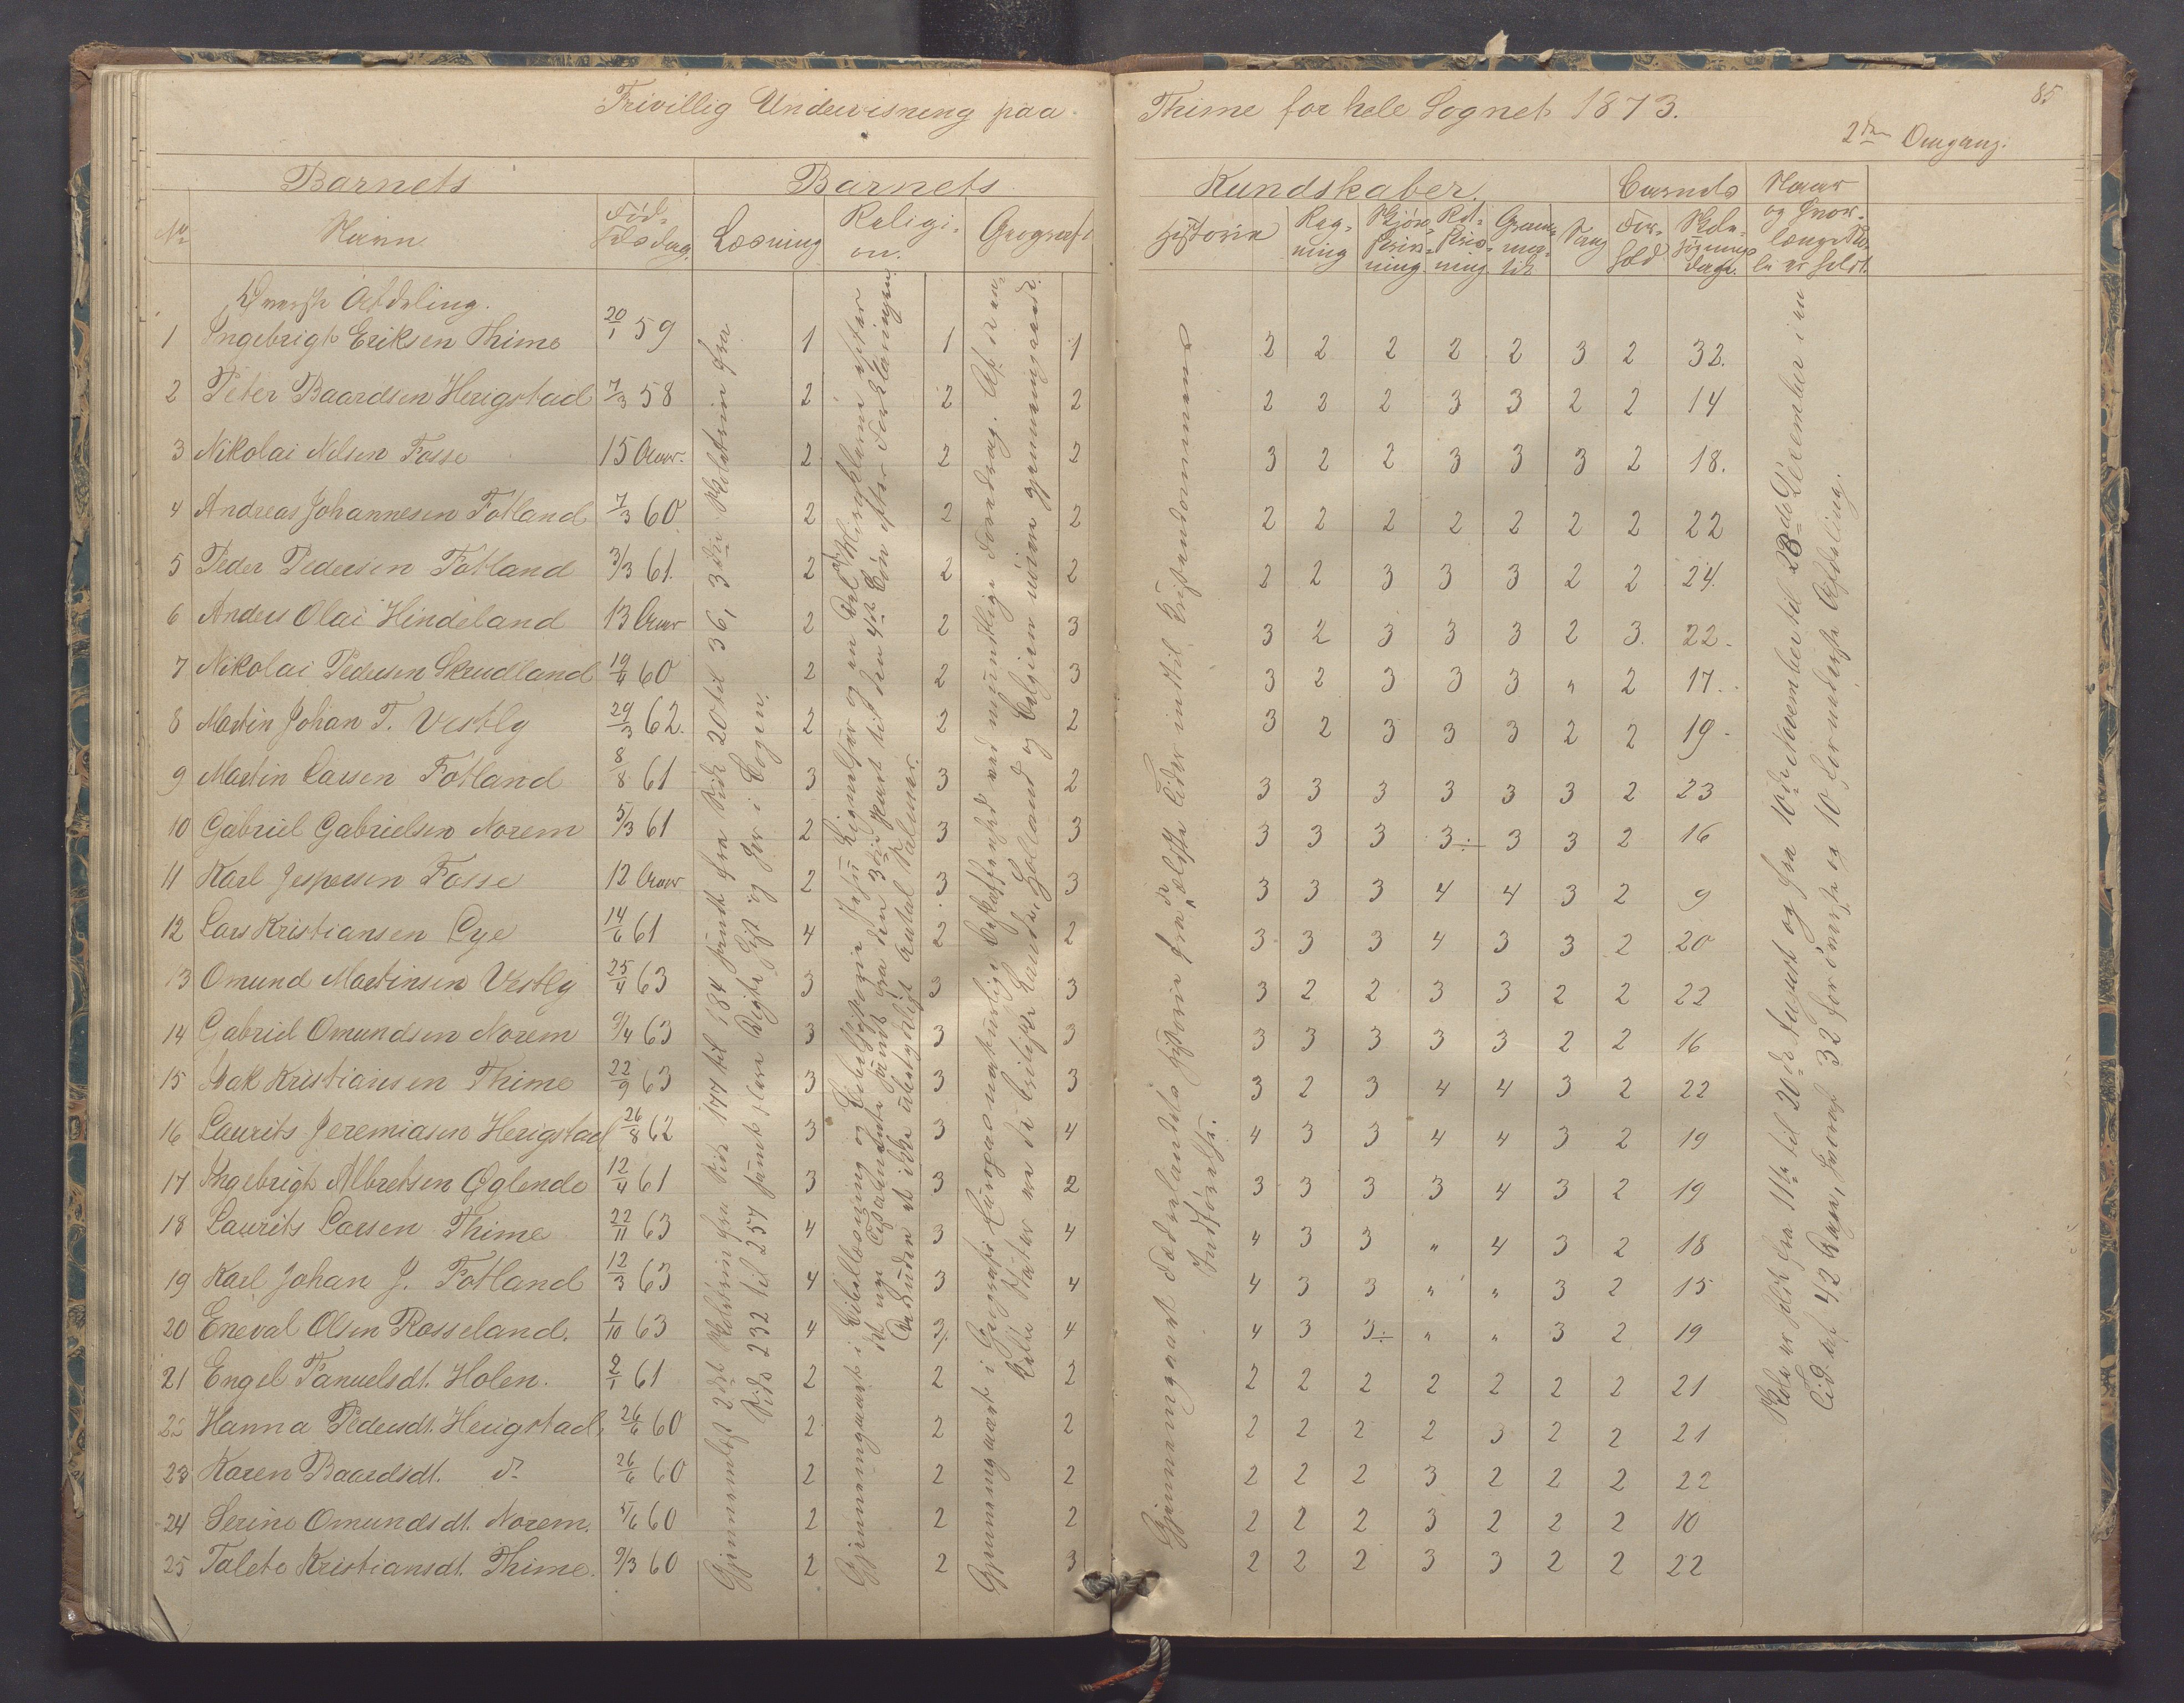 Frivillig Undervisning paa Thime for hele Sognet 1873.
85
2den Omgang.
Barnets Barnets Kundskaber. Barnets Naar
No Navn Fødselsdag. Læsning Religion. Geografi Historie Regning Skjønskrivning Retskrivning Grammatik Sang Forhold Skolesøgningsdage. og hvorlænge Skole er holdt.
Øverste Afdeling.
1 Ingebrigt Eriksen Thime 20/1 59 1 1 1 2 2 2 2 2 3 2 32.
2 Peter Baardsen Herigstad 7/3 58 2 2 2 2 2 2 3 3 2 2 14
3 Nikolai Nilsen Fosse 15 Aar. 2 2 2 3 2 2 3 3 3 2 18.
4 Andreas Johannesen Fotland 7/3 60 2 2 2 2 2 2 2 2 2 2 22
5 Peder Pedersen Fotland 3/3 61. 2 2 2 2 2 3 3 3 2 2 24.
6 Anders Olai Hindeland 13 Aar 2 2 3 3 2 3 3 3 2 3. 22.
7 Nikolai Pedersen Skrudland 19/4 60 2 2 3 3 2 3 3 3 " 2 17.
8 Martin Johan T. Vestly 29/3 62. 2 2 2 3 2 3 3 3 2 2 19.
9 Martin Larsen Fotland 8/8 61 3 3 2 3 3 3 3 3 3 2 23
10 Gabriel Gabrielsen Norem 5/3 61 2 3 3 3 3 3 3÷ 3 3 2 16
11 Karl Jespersen Fosse 12 Aar 2 3 3 3 3 3 4 4 3 2 9
12 Lars Kristiansen Lye 14/6 61 4 2 2 3 3 3 4 3 3 2 20
13 Omund Martinsen Vestly 25/4 63 3 3 3 3 2 2 3 3 2 2 22
14 Gabriel Omundsen Norem 9/4 63 3 3 3 3 3 3 3 3 2 2 16
15 Isak Kristiansen Thime 22/9 63 3 3 3 3 2 3 4 4 3 2 22
16 Laurits Jeremiasen Herigstad 26/8 62 3 3 4 4 3 3 4 4 3 2 19
17 Ingebrigt Albretsen Øglende 12/4 61 3 3 2 3 3 3 3 4 3 2 19
18 Laurits Larsen Thime 22/11 63 4 3 4 4 3 3 " 4 3 2 18
19 Karl Johan J. Fotland 12/3 63 4 3 4 4 3 3 " " 3 2 15
20 Eneval Olsen Rosseland. 1/10 63 4 3. 4 4 3 3÷ " " 3 2 19
21 Engel Tanuelsdt. Holen. 2/1 61 2 2 2 2 2 2 2 2 2 2 21
22 Hanna Pedersdt. Herigstad. 26/6 60 2 2 2 2 2 2 2 3 2 2 21
23 Karen Baardsdt. do 26/6 60 2 2 2 2 2 2 3 2 2 2 22
24 Serine Omundsdt. Norem. 5/6 60 2 2 2 2 2 2 3 2 2 2 10
25 Talete Kristiansdt. Thime. 9/3 60 2 2 3 2 2 2 3 3 2 2 22
Gjennemlæst 2det Skoletrin fra Side 177 til 184 samt fra Side 20 til 36, 3die Skoletrin fra
Side 232 til 257 samt flere Digte hist og her i Bogen.
Gjennemgaaet i Bibellæsning og Bibelhistorie Jesu Lignelser og en Del af Miraklerne efter
det nye Testamente samt fra den 3die Part til den 4de Bøn efter Forklaringen.
Desuden et ikke ubetydeligt Antal Salmer.
Gjennemgaaet i Geografi Europas naturlige Beskaffenhed ved mundtlige Foredrag. Af de en-
kelte Stater ere de britiske Lande, Holland og Belgien nøiere gjennemgaaede.
Gjennemgaaet Fædrelandets Historie fra de ældste Tider indtil Kristendommens
Indførelse.
Skole er holdt fra 11te til 20de August og fra 10de November til 23de December i en
Tid af 42 Dage, hvoraf 32 for øverste og 10 for nederste Afdeling.